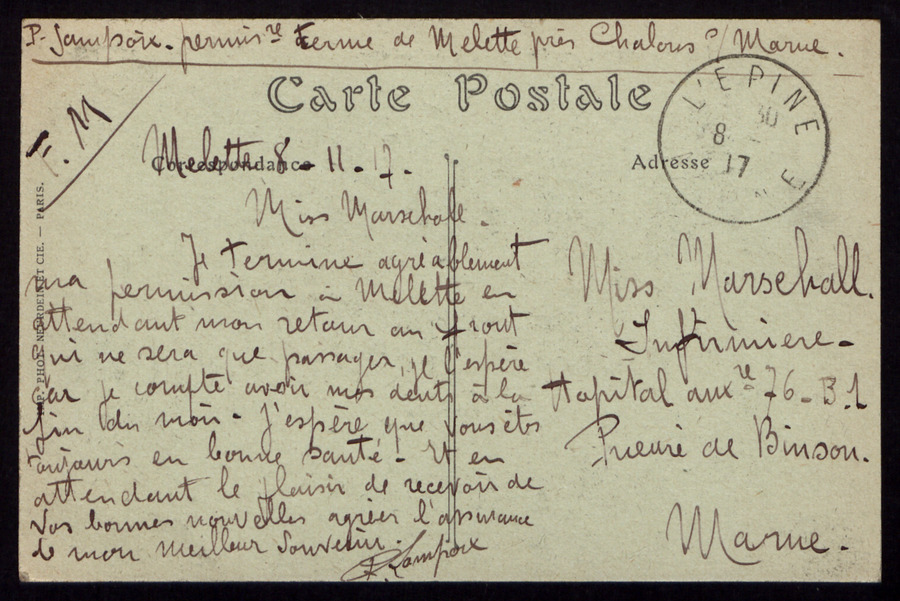 P. Jampoix. permisre Ferme de Melette près Chalons s/ Marne.
Carte Postale
F. M
Correspondance
Adresse
L'EPINE
8 30
17
NE
Melette 8-11-17.
Miss Marschall.
Je termine agréablement
ma permission à Melette en
attendant mon retour au front
qui ne sera que passager, je l'espère
car je compte avoir mes dents à la
fin du mois - J'espère que vous êtes
toujours en bonne santé. Et en
attendant le plaisir de recevoir de
vos bonnes nouvelles agréer l'assurance
de mon meilleur souvenir.
P. Jampoix
Miss Marschall.
Infirmiere -
Hopital auxre 76 - B.1
Prieuré de Binson.
Marne.
IMP. PHOT. NEURDEIN ET CIE. — PARIS.